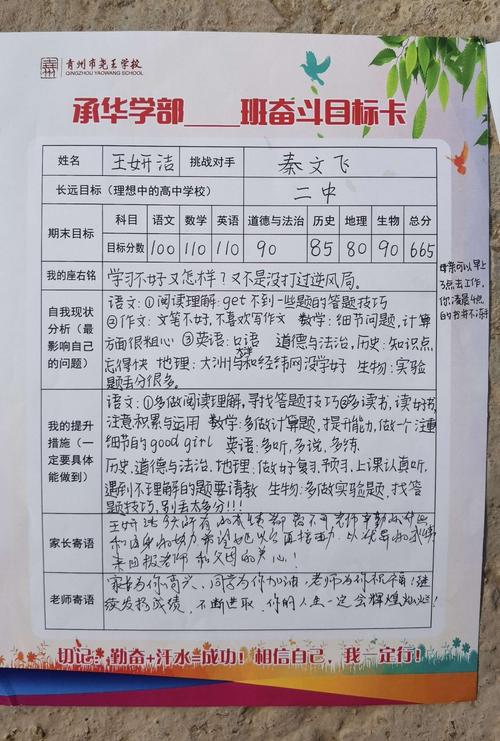 青州市尧王学校
QINGZHOU YAOWANG SCHOOL
承华学部____班奋斗目标卡
姓名 王妍洁 挑战对手 秦文飞
长远目标（理想中的高中学校） 二中
期末目标
科目 语文 数学 英语 道德与法治 历史 地理 生物 总分
目标分数 100 110 110 90 85 80 90 665
我的座右铭 学习不好又怎样？又不是没打过逆风局。
母亲可以早上
3点去工作，
你凌晨4点
的书
自我现状
分析（最
影响自己
的问题）
语文：①阅读理解：get不到一些题的答题技巧
②作文：文笔不好，不喜欢写作文 数学：细节问题，计算
方面很粗心 ③英语：口语 道德与法治，历史：知识点
忘得快 地理：大洲大洋和经纬网没学好 生物：实验
题丢分很多。
我的提升
措施（一
定要具体
能做到）
语文：①多做阅读理解，寻找答题技巧②多读书，读好书，
注意积累与运用 数学：多做计算题，提升能力，做一个注重
细节的good girl 英语：多听，多说，多练
历史，道德与法治，地理：做好复习，预习，上课认真听，
遇到不理解的题要请教 生物：多做实验题，找答
题技巧，别丢太多分!!!
家长寄语
王妍洁今天所有的成绩都离不开老师辛勤的付出
和自身的努力 希望她以后再接再励，以优异的成绩
来回报老师和父母的关心！
老师寄语
家长为你高兴、同学为你加油，老师为你祝福！继
续发扬成绩，不断进取，你的人生一定会辉煌灿烂！
切记：勤奋+汗水=成功！相信自己，我一定行！